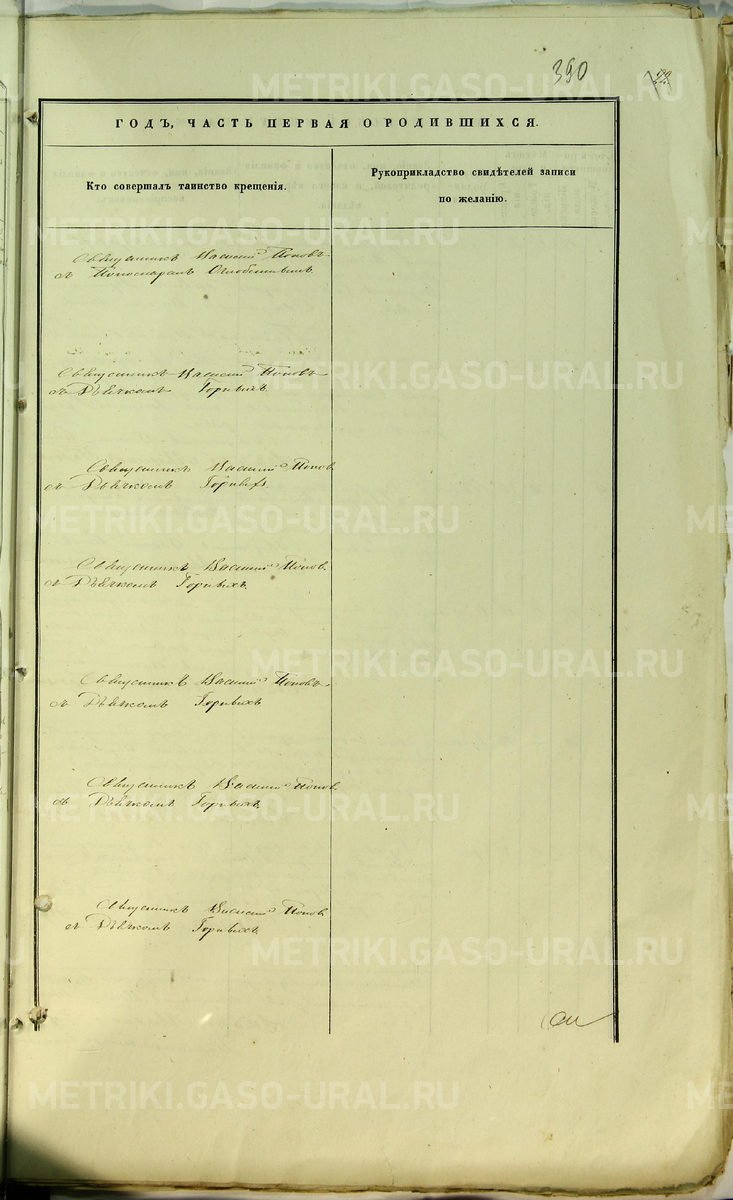 390
ГОДЪ, ЧАСТЬ ПЕРВАЯ О РОДИВШИХСЯ.
Кто совершалъ таинство крещенія.
Рукоприкладство свидѣтелей записи
по желанію.
Священникъ Василій Поповъ
съ Пономаремъ
Священникъ Василій Поповъ
съ Дьячкомъ Горныхъ
Священникъ Василій Попов
съ Дьячкомъ Горныхъ
Священникъ Василій Попов.
съ Дьячкомъ Горныхъ.
Священникъ Василій Поповъ
съ Дьячкомъ Горныхъ
Священникъ Василій Попов
съ Дьячкомъ Горныхъ
Священникъ Василій Попов
съ Дьячкомъ Горныхъ
METRIKI.GASO-URAL.RU